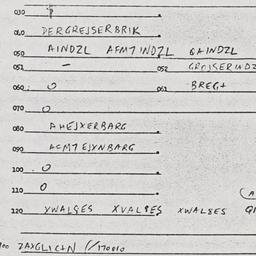 030
040 DERGREJSERBRIK
050 AINDZL AFM7INDZL GAINDZL
051 - 052
060 0 061 BREG+
070 0
080 AHEJXERBARG
090 ACM7EJXNBARG
100 0
110 0
120 XWALSES XVALSES XWALSES
ZAXGLICHN //170010